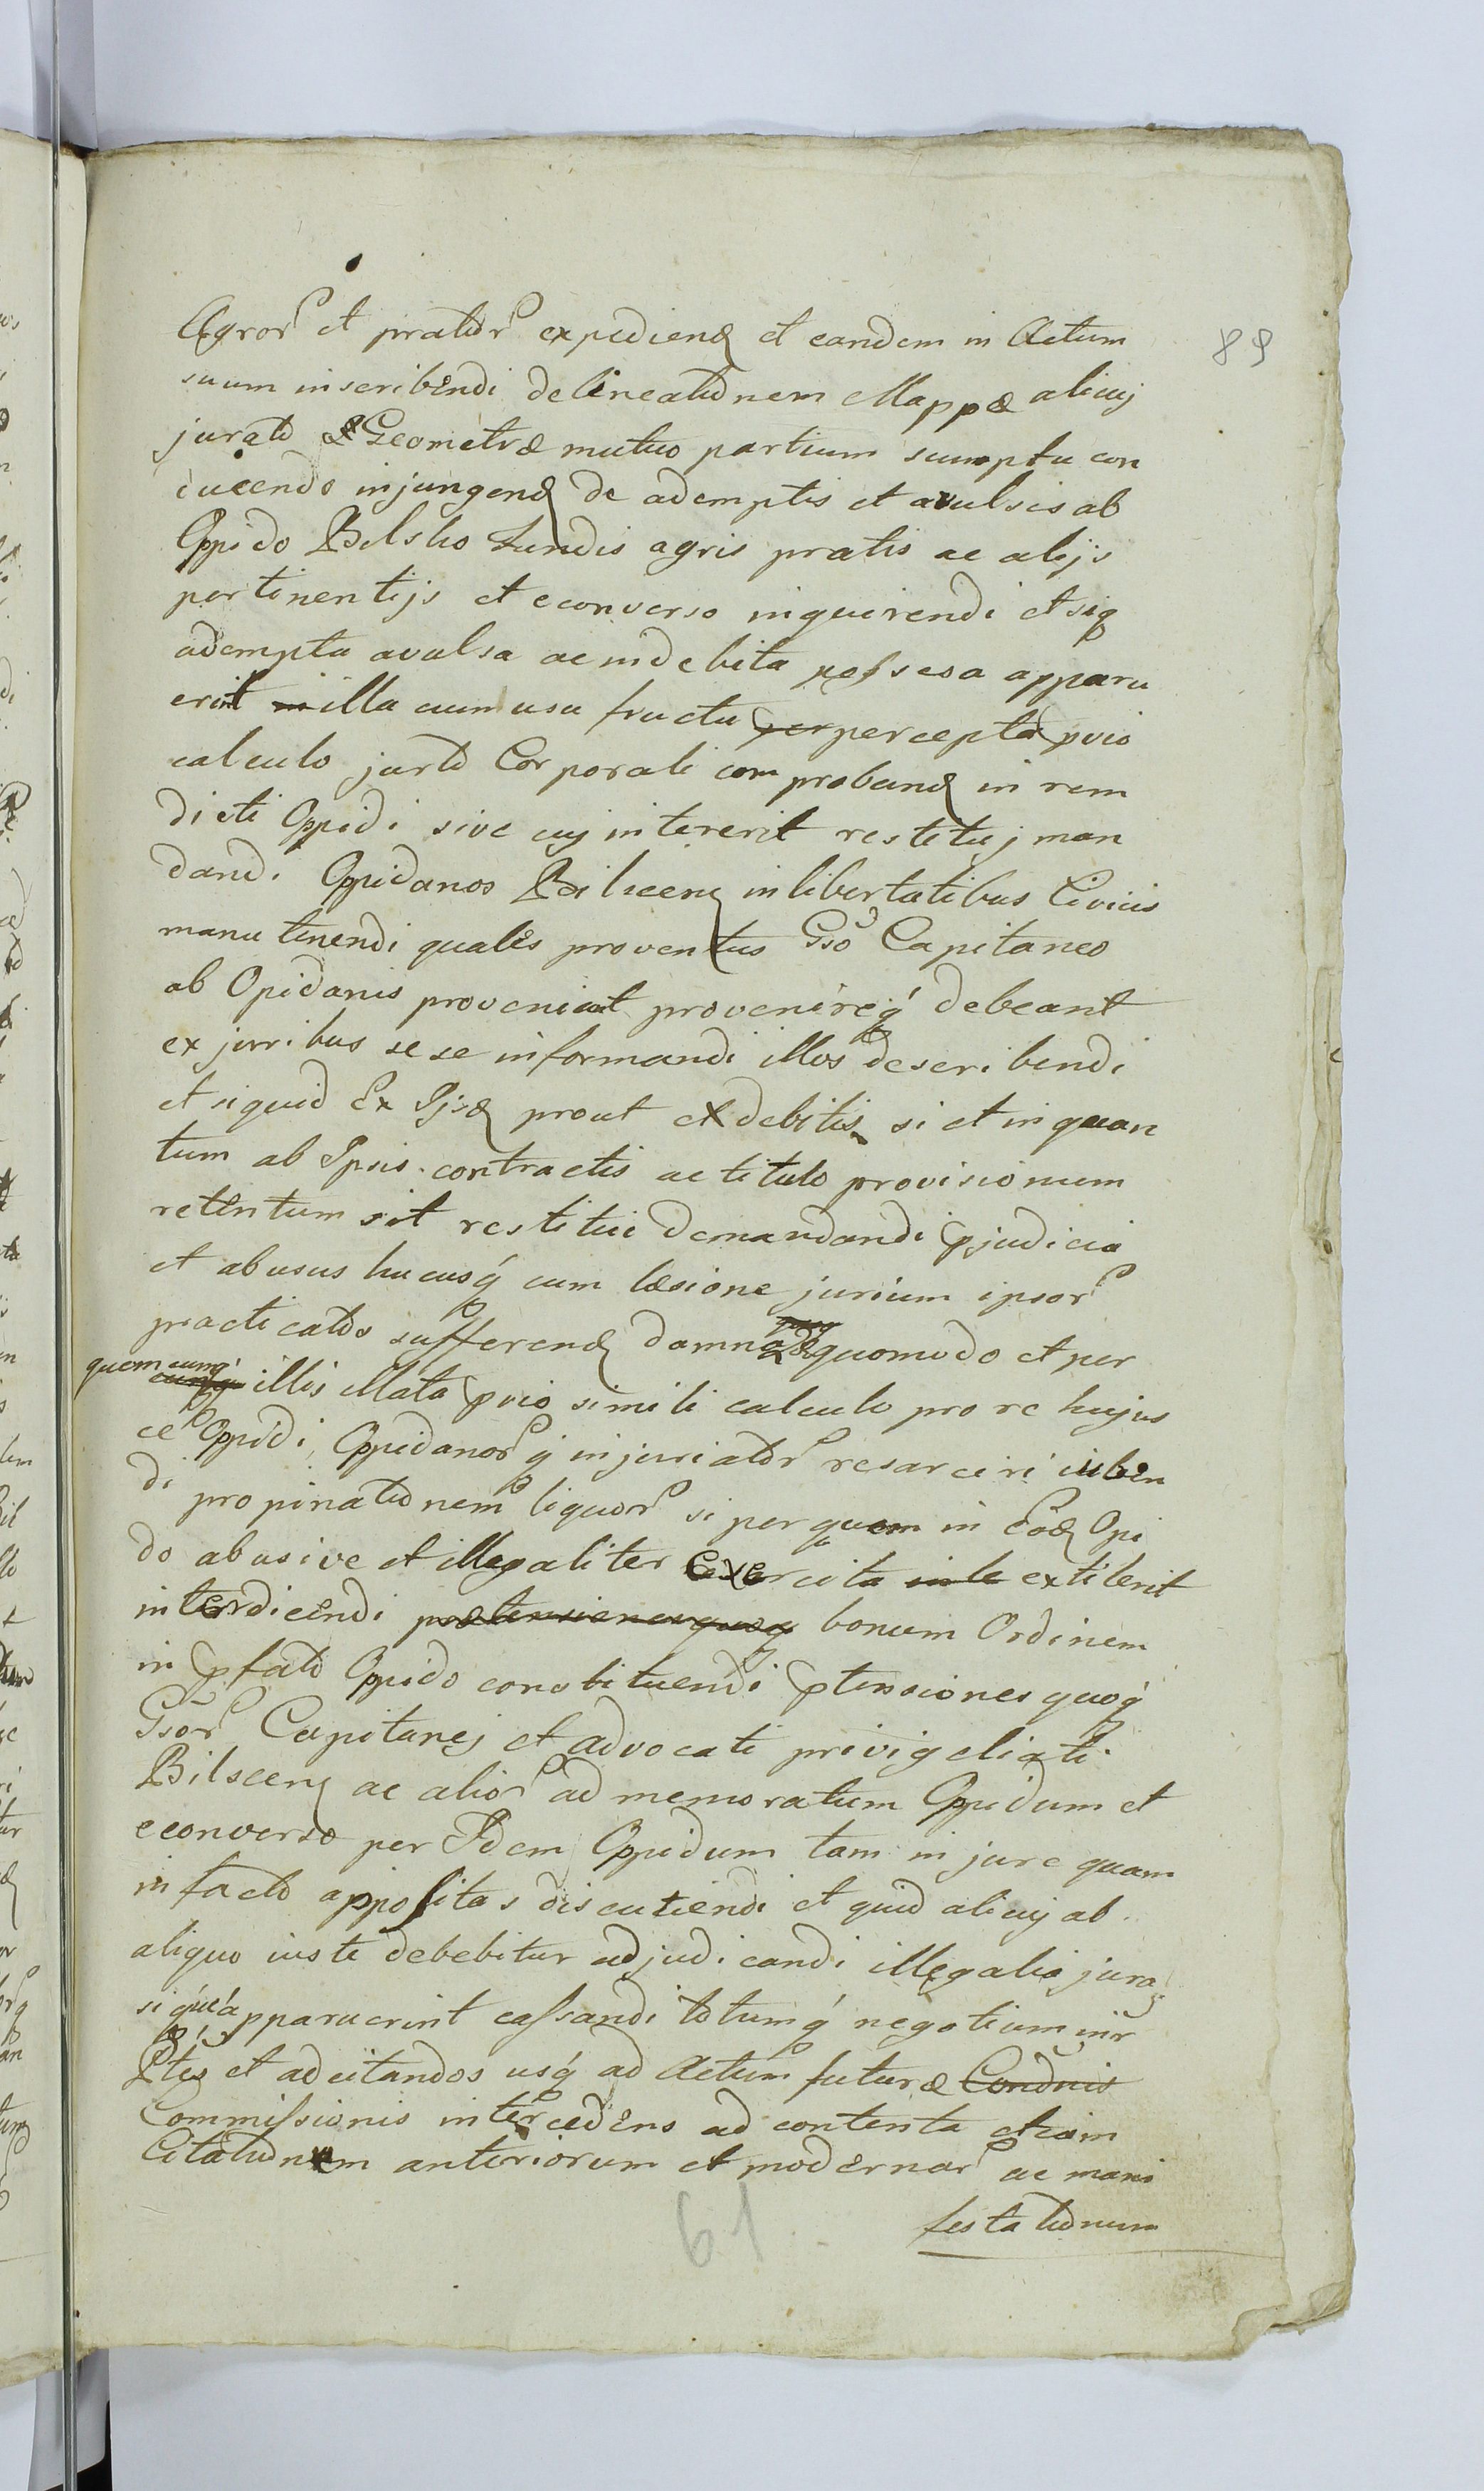 Agror et prator expediend et eandem in Actum
89
suum inscribendi delineationem Mappæ alicuj
jurato Geometræ mutuo partium sumptu con
ducendo injungend de ademptis et avulsis ab
Oppido Bilsko fundis agris pratis ac alijs
pertinentijs et econverso inquirendi et siq
adempta avulsa ac indebita possessa apparu
erint in illa cum usu fructu per percepto pvio
calculo jurto Corporali comproband in rem
dicti Oppidi sive cuj intererit restituj man
dandi Oppidanos Bilscen in libertatibus Civicis
manutenendi quales proventus Gso Capitaneo
ab Opidanis proveniant provenireq debeant
ex juribus sese informandi illos describendi
et siquid Ex Ijsd prout ex debitis si et in quan
tum ab Ipsis contractis ac titulo provisionum
retentum sit restitui demandandi pjudicia
et abusus hucusq cum læsione jurium ipsor
practicatos sufferend damna quomodo et per
quemcunq illis illata pvio simili calculo pro re hujus
ce Oppidi Oppidanorq injuriator resarciri iuben
di propinationem liquor si per quem in Eod Opi
do abusive et illegaliter Exercita inte extiterit
interdicendi prætensionesquoq bonum Ordinem
in pfato Oppido constituendi ptensiones quoq
Gsor Capitanej et Advocati privigeliati
Bilscen ac alior ad memoratum Oppidum et
econverso per Idem Oppidum tam in jure quam
in facto appositas discutiendi et quid alicuj ab
aliquo iuste debebitur adjudicandi illegalia jura
si quæ apparuerint cassandi totumq negotium inr
Ptes et adcitandos usq ad Actum futuræ Condnis
Commissionis intercedens ad contenta etiam
Citationem anteriorum et modernar ac mani
festationum
61